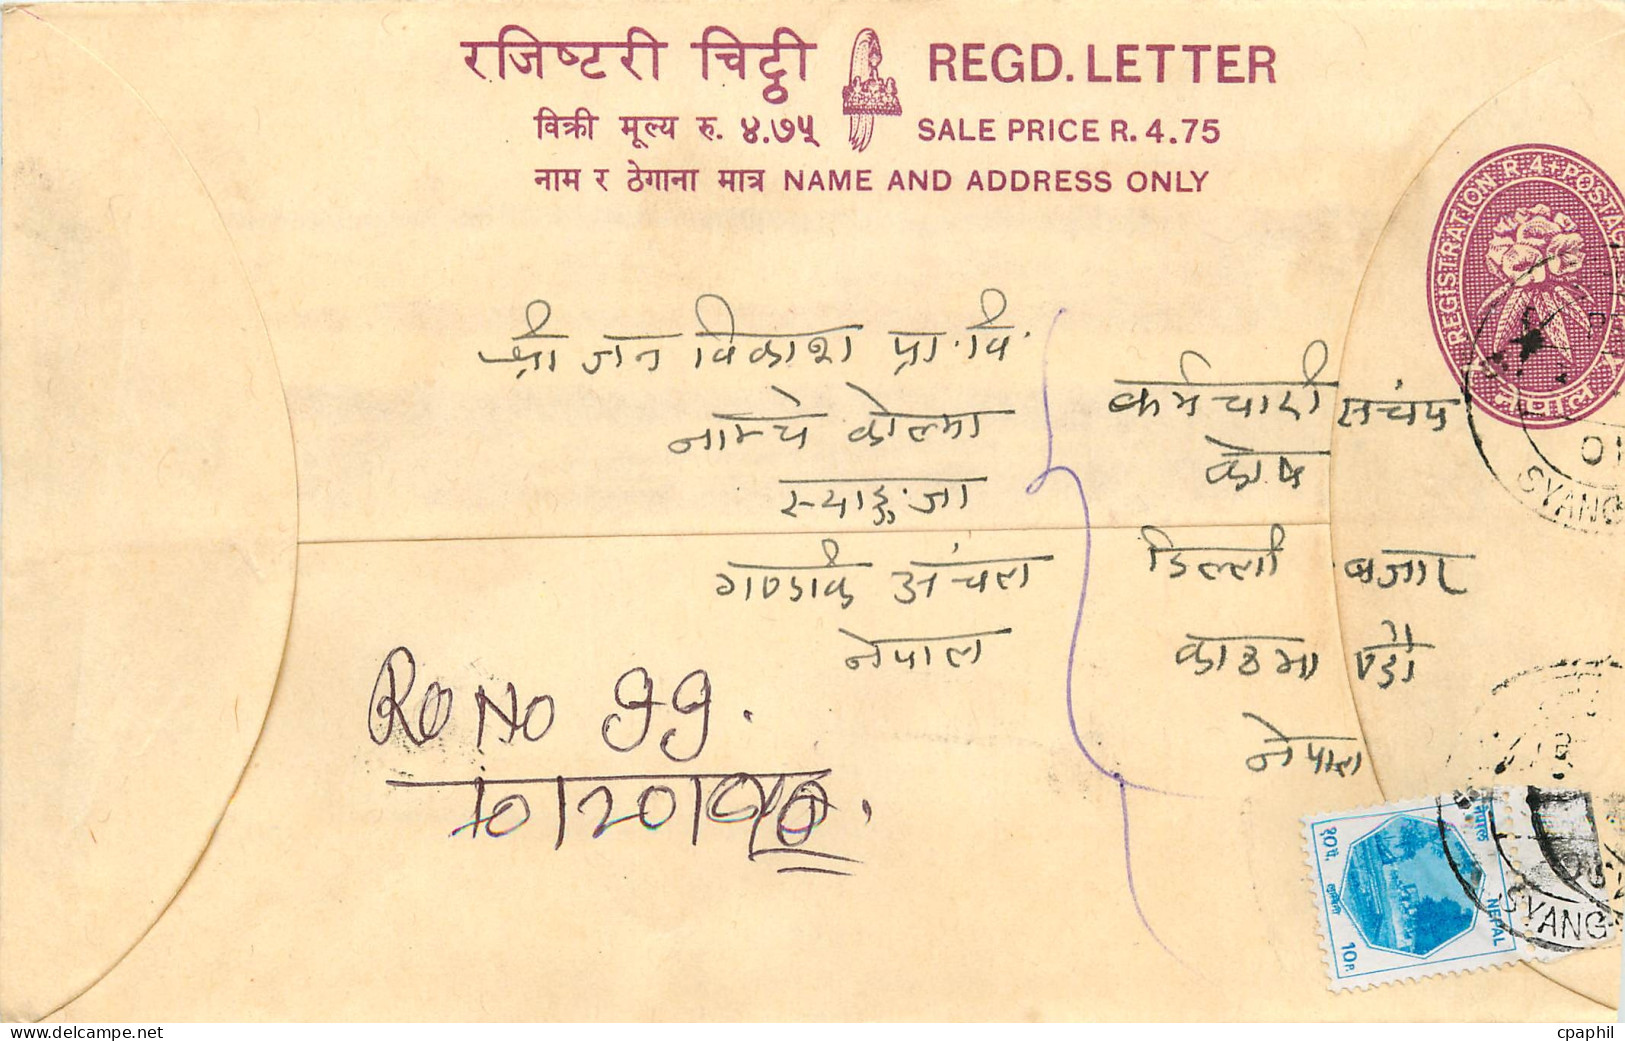 रजिष्टरी चिठ्ठी REGD. LETTER
विक्री मूल्य रु. ४.७५ SALE PRICE R. 4.75
नाम र ठेगाना मात्र NAME AND ADDRESS ONLY
REGISTRATION R.4+POSTAG
नेपाल
श्री जन विकाश प्रा. वि.
कोल्मा
स्याङ्जा
गण्डकि अंचल
नेपाल
कर्मचारी संचय
कोष
डिल्ली बजार
काठमाण्डौ
नेपाल
RG NO 99.
SYANG
नेपाल
१० पै.
NEPAL
10 P.
SYANG
cpaphil